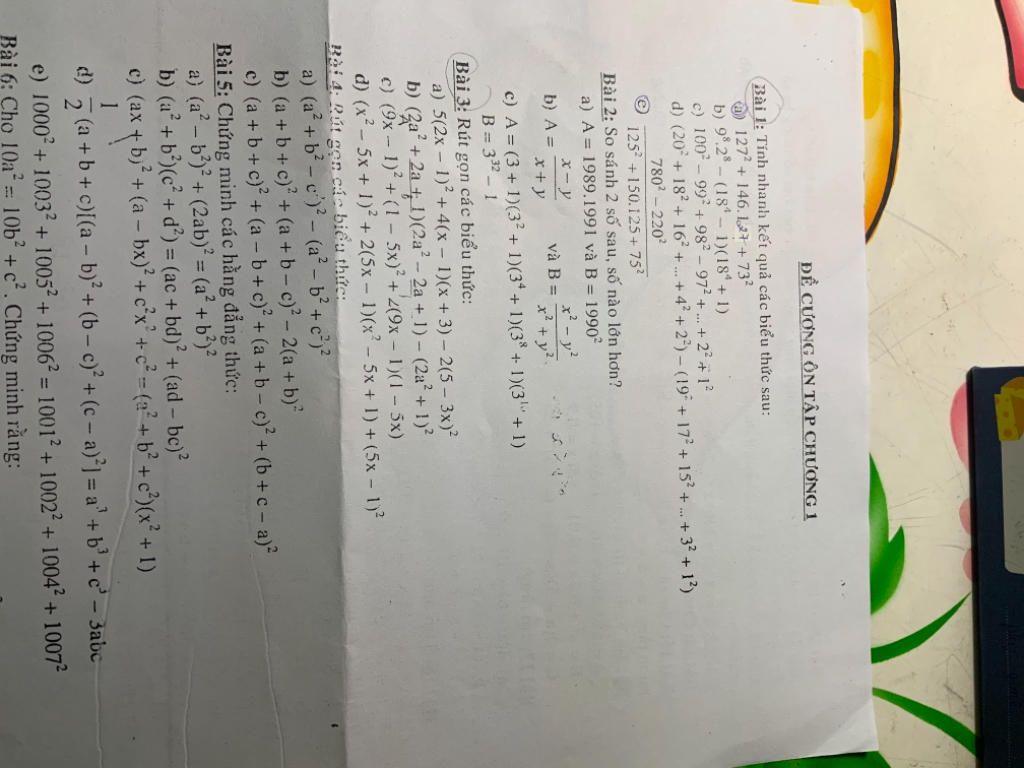 ĐỀ CƯƠNG ÔN TẬP CHƯƠNG 1
Bài 1: Tính nhanh kết quả các biểu thức sau:
a) 127² + 146.127 + 73²
b) 9⁸.2⁸ − (18⁴ − 1)(18⁴ + 1)
c) 100² − 99² + 98² − 97² + ... + 2² − 1²
d) (20² + 18² + 16² + ... + 4² + 2²) − (19² + 17² + 15² + ... + 3² + 1²)
e) (780² − 220²)/(125² + 150.125 + 75²)
Bài 2: So sánh 2 số sau, số nào lớn hơn?
a) A = 1989.1991 và B = 1990²
b) A = (x − y)/(x + y) và B = (x² − y²)/(x² + y²)
c) A = (3 + 1)(3² + 1)(3⁴ + 1)(3⁸ + 1)(3¹⁶ + 1)
B = 3³² − 1
Bài 3: Rút gọn các biểu thức:
a) 5(2x − 1)² + 4(x − 1)(x + 3) − 2(5 − 3x)²
b) (2a² + 2a + 1)(2a² − 2a + 1) − (2a² + 1)²
c) (9x − 1)² + (1 − 5x)² + 2(9x − 1)(1 − 5x)
d) (x² − 5x + 1)² + 2(5x − 1)(x² − 5x + 1) + (5x − 1)²
Bài 4: Rút gọn các biểu thức:
a) (a² + b² − c²)² − (a² − b² + c²)²
b) (a + b + c)² + (a + b − c)² − 2(a + b)²
c) (a + b + c)² + (a − b + c)² + (a + b − c)² + (b + c − a)²
Bài 5: Chứng minh các hằng đẳng thức:
a) (a² − b²)² + (2ab)² = (a² + b²)²
b) (a² + b²)(c² + d²) = (ac + bd)² + (ad − bc)²
c) (ax + b)² + (a − bx)² + c²x² + c² = (a² + b² + c²)(x² + 1)
d) 1/2 (a + b + c)[(a − b)² + (b − c)² + (c − a)²] = a³ + b³ + c³ − 3abc
e) 1000² + 1003² + 1005² + 1006² = 1001² + 1002² + 1004² + 1007²
Bài 6: Cho 10a² = 10b² + c². Chứng minh rằng: